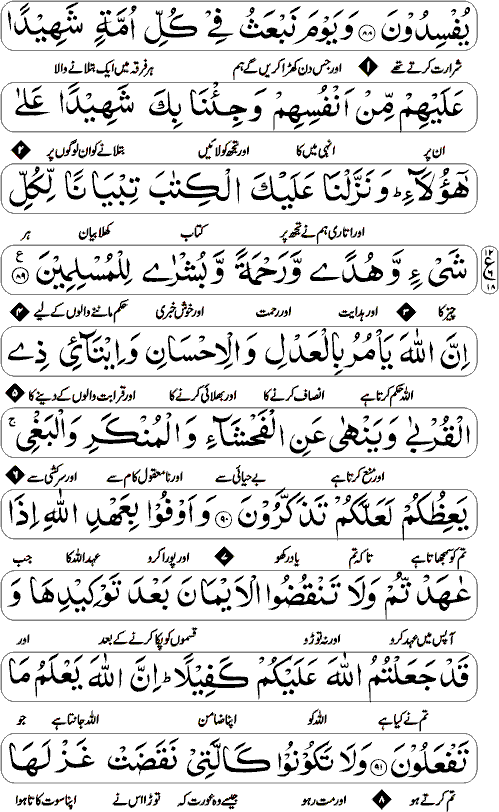 يُفْسِدُوْنَ ﴿۸۸﴾ وَيَوْمَ نَبْعَثُ فِيْ كُلِّ اُمَّةٍ شَهِيْدًا
شرارت کرتے تھے ۱ اور جس دن کھڑا کریں گے ہم ہر فرقہ میں ایک بتلانے والا
عَلَيْهِمْ مِّنْ اَنْفُسِهِمْ وَجِئْنَا بِكَ شَهِيْدًا عَلٰى
ان پر انہی میں کا اور تجھ کو لائیں بتلانے کو ان لوگوں پر ۲
هٰٓؤُلَآءِ ؕ وَنَزَّلْنَا عَلَيْكَ الْكِتٰبَ تِبْيَانًا لِّكُلِّ
اور اتاری ہم نے تجھ پر کتاب کھلا بیان ہر
شَيْءٍ وَّهُدًى وَّرَحْمَةً وَّبُشْرٰى لِلْمُسْلِمِيْنَ ﴿۸۹﴾ ع
۱۲ ع ۶ ۱۸
چیز کا ۳ اور ہدایت اور رحمت اور خوش خبری حکم ماننے والوں کے لیے ۴
اِنَّ اللّٰهَ يَاْمُرُ بِالْعَدْلِ وَالْاِحْسَانِ وَاِيْتَآئِ ذِي
اللہ حکم کرتا ہے انصاف کرنے کا اور بھلائی کرنے کا اور قرابت والوں کے دینے کا ۵
الْقُرْبٰى وَيَنْهٰى عَنِ الْفَحْشَآءِ وَالْمُنْكَرِ وَالْبَغْيِ ۚ
اور منع کرتا ہے بے حیائی سے اور نامعقول کام سے اور سرکشی سے ۶
يَعِظُكُمْ لَعَلَّكُمْ تَذَكَّرُوْنَ ﴿۹۰﴾ وَاَوْفُوْا بِعَهْدِ اللّٰهِ اِذَا
تم کو سمجھاتا ہے تاکہ تم یاد رکھو ۷ اور پورا کرو عہد اللہ کا جب
عٰهَدْتُّمْ وَلَا تَنْقُضُوا الْاَيْمَانَ بَعْدَ تَوْكِيْدِهَا وَ
آپس میں عہد کرو اور نہ توڑو قسموں کو پکا کرنے کے بعد اور
قَدْ جَعَلْتُمُ اللّٰهَ عَلَيْكُمْ كَفِيْلًا ؕ اِنَّ اللّٰهَ يَعْلَمُ مَا
تم نے کیا ہے اللہ کو اپنا ضامن اللہ جانتا ہے جو
تَفْعَلُوْنَ ﴿۹۱﴾ وَلَا تَكُوْنُوْا كَالَّتِيْ نَقَضَتْ غَزْلَهَا
تم کرتے ہو ۸ اور مت رہو جیسے وہ عورت کہ توڑا اس نے اپنا سوت کاتا ہوا